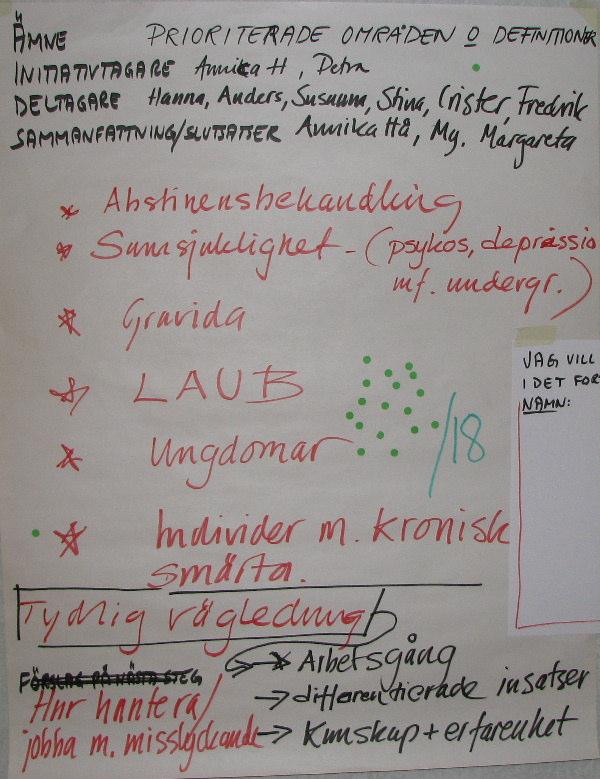 ÄMNE PRIORITERADE OMRÅDEN O DEFINITIONER
INITIATIVTAGARE Annika H, Petra
DELTAGARE Hanna, Anders, Susanna, Stina, Crister, Fredrik
SAMMANFATTNING/SLUTSATSER Annika Hå, My, Margareta
* Abstinensbehandling
* Samsjuklighet - (psykos, depressio
mf. undergr.)
* Gravida
* LAUB
* Ungdomar
/18
* Individer m. kronisk
smärta.
Tydlig vägledning
FÖRSLAG PÅ NÄSTA STEG
→ * Arbetsgång
Hur hantera/
→ differentierade insatser
jobba m. misslyckande
→ Kunskap + erfarenhet
JAG VILL
I DET FOR
NAMN: